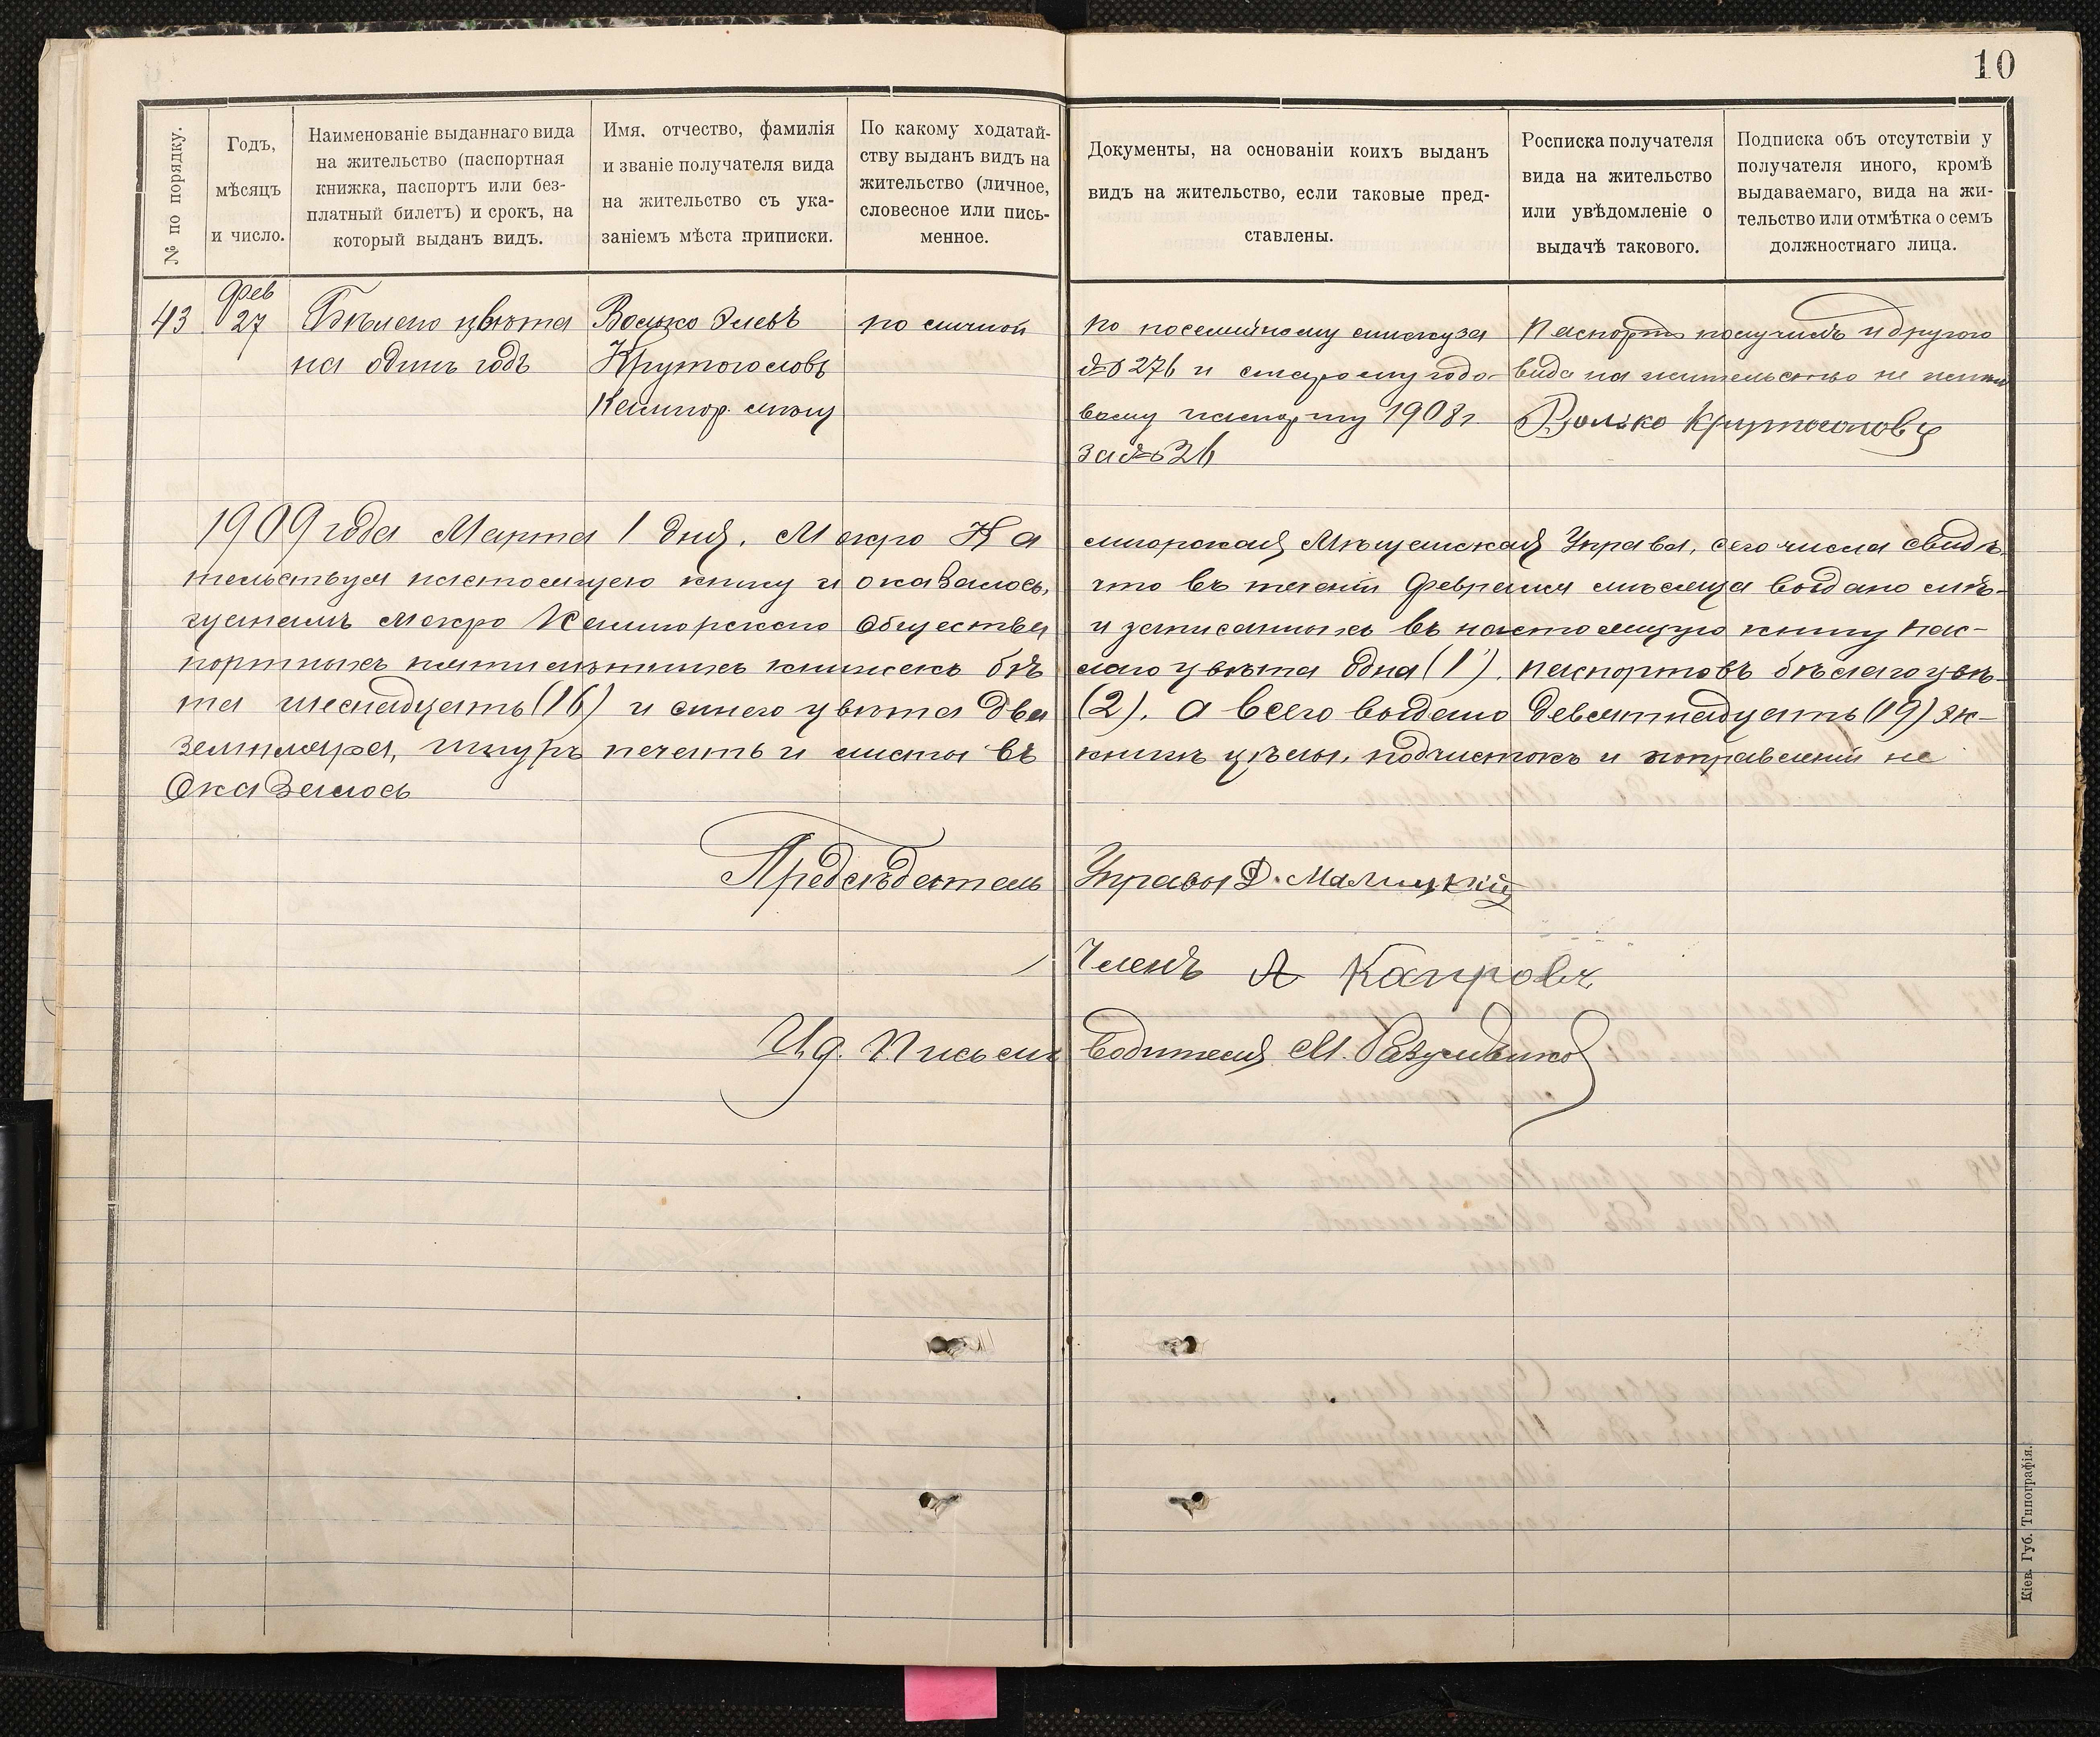 10
№ по порядку.
Годъ,
мѣсяцъ
и число.
Наименованіе выданнаго вида
на жительство (паспортная
книжка, паспортъ или без-
платный билетъ) и срокъ, на
который выданъ видъ.
Имя, отчество, фамилія
и званіе получателя вида
на жительство съ ука-
заніемъ мѣста приписки.
По какому ходатай-
ству выданъ видъ на
жительство (личное,
словесное или пись-
менное.
Документы, на основаніи коихъ выданъ
видъ на жительство, если таковые пред-
ставлены.
Росписка получателя
вида на жительство
или увѣдомленіе о
выдачѣ такового.
Подписка объ отсутствіи у
получателя иного, кромѣ
выдаваемаго, вида на жи-
тельство или отмѣтка о семъ
должностнаго лица.
43
Фев
27
Бѣлаго цвѣта
на одинъ годъ
Волько
Крутоголовъ
по личной
по посемейному списку за
№ 276 и старому годо-
вому паспорту 1908 г.
за № 326
Паспортъ получилъ и другого
вида на жительство не
Волько Крутоголовъ
1909 года Марта 1 дня, Мокро Ка
лигорская Мѣщанская Управа, сего числа свидѣ-
тельствуя настоящую книгу и оказалось,
что въ течении Февраля мѣсяца выдано мѣ-
щанамъ Мокро Калигорскаго Общества
и записанныхъ въ настоящую книгу пас-
портныхъ пятилѣтнихъ книжекъ бѣ
лаго цвѣта одна (1). паспортовъ бѣлаго цвѣ-
та шеснадцать (16) и синего цвѣта два
(2). а всего выдано девятнадцать (19) эк-
земпляра, шнуръ печать и листы въ
книгѣ цѣлы, подчистокъ и поправленій не
оказалось
Предсѣдатель Управы Д. Малицкій
Членъ А Каировъ
И. д. Письмоводителя М.
Кіев. Губ. Типографія.